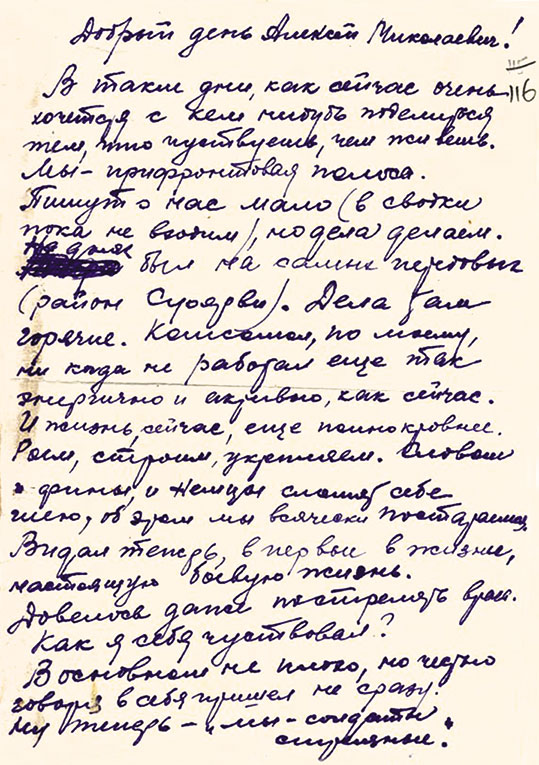 Добрый день Алексей Николаевич!
116
В такие дни, как сейчас очень
хочется с кем нибудь поделиться
тем, что чуствуешь, чем живешь.
Мы – прифронтовая полоса.
Пишут о нас мало (в сводки
пока не входим), но дела делаем.
На днях
был на самых передовых
(район Суоярви). Дела там
горячие. Комсомол, по моему,
ни когда не работал еще так
энергично и активно, как сейчас.
И жизнь, сейчас, еще полнокровнее.
Роем, строим, укрепляем. Словом
и финны, и немцы сломят себе
шею, об этом мы всячески постараемся.
Видал теперь, в первые в жизни,
настоящую боевую жизнь.
Довелось даже пострелять врага.
Как я себя чуствовал?
В основном не плохо, но честно
говоря в себя пришел не сразу.
Ну теперь – „мы – солдаты
стреляные".